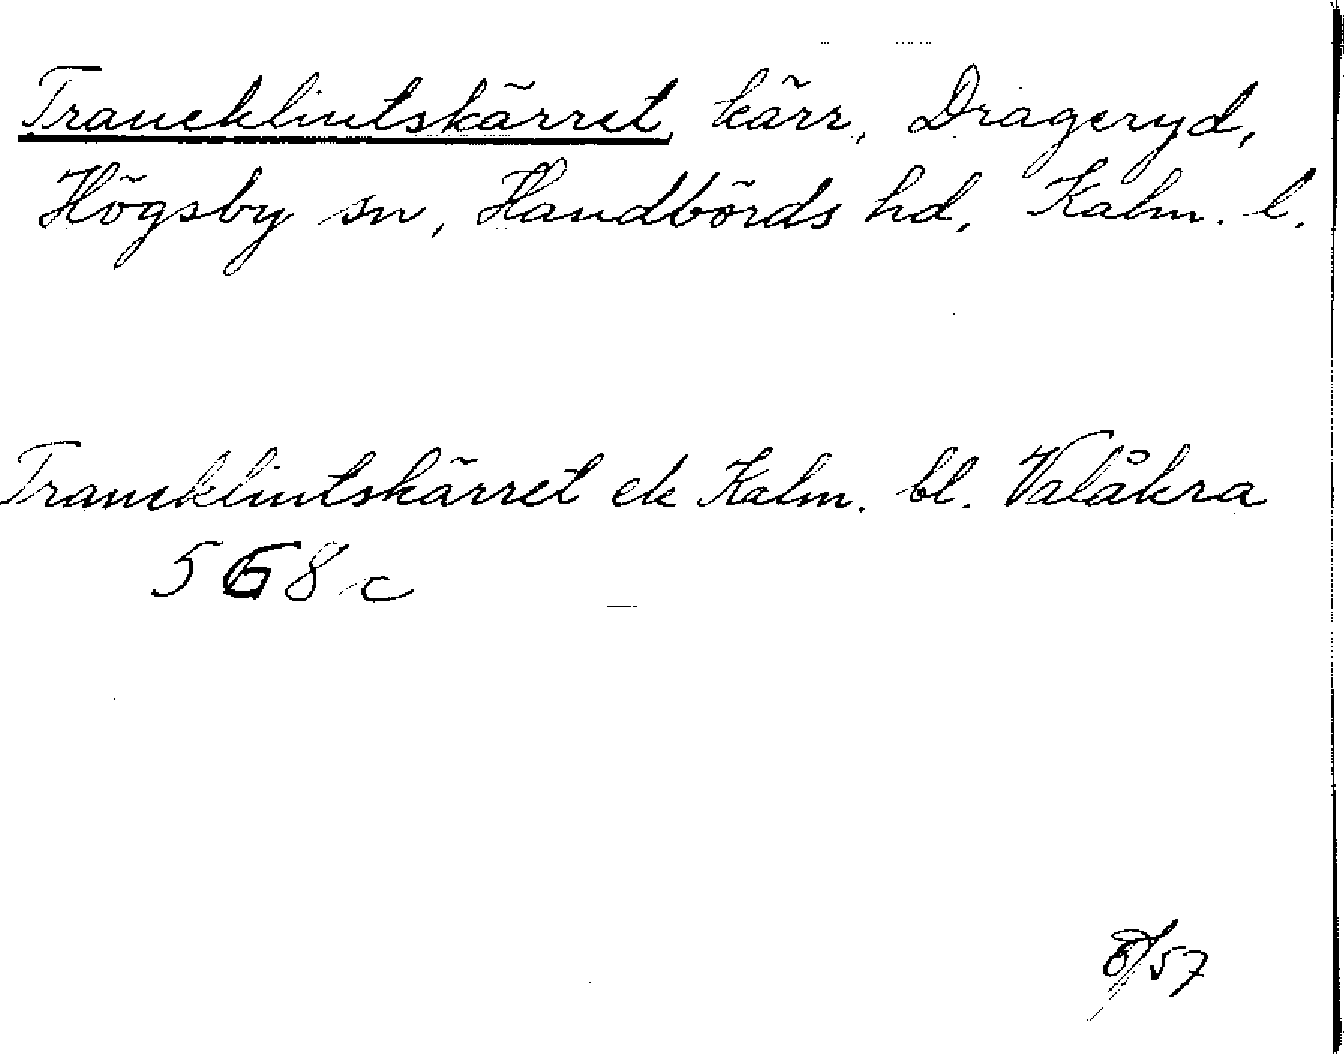 Traneklintskärret, kärr, Drageryd,
Högsby sn, Handbörds hd, Kalm. l.
Traneklintskärret ek Kalm. bl. Valåkra
568 c
57